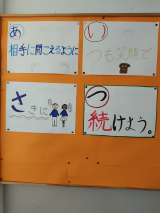 あ
相手に聞こえるように
い
つも笑顔で
さ
きに
つ
続けよう。